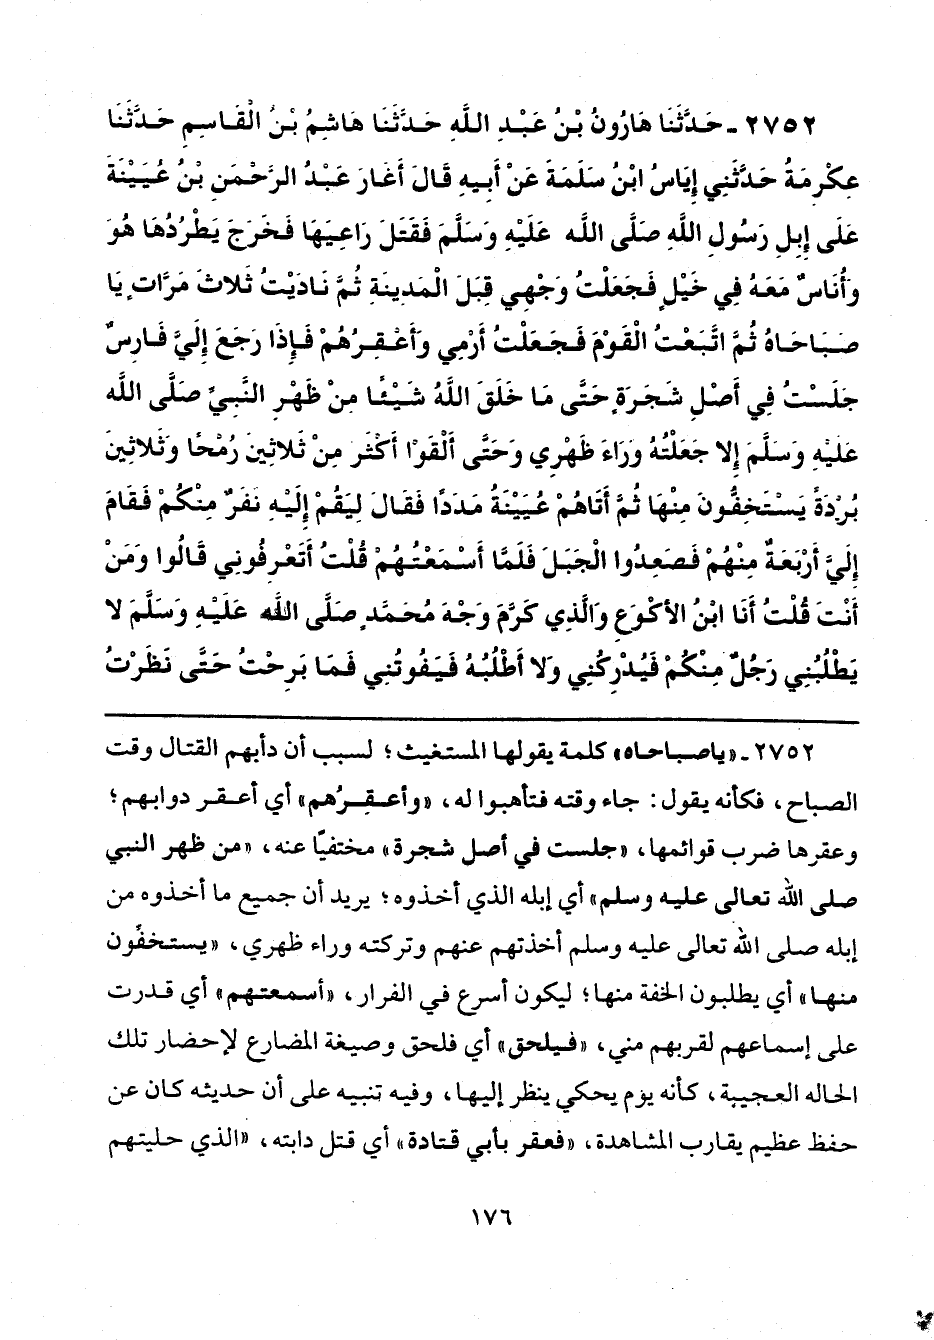 ٢٧٥٢ - حَدَّثَنَا هَارُونُ بْنُ عَبْدِ اللَّهِ حَدَّثَنَا هَاشِمُ بْنُ الْقَاسِمِ حَدَّثَنَا
عِكْرِمَةُ حَدَّثَنِي إِيَاسُ ابْنُ سَلَمَةَ عَنْ أَبِيهِ قَالَ أَغَارَ عَبْدُ الرَّحْمَنِ بْنُ عُيَيْنَةَ
عَلَى إِبِلِ رَسُولِ اللَّهِ صَلَّى اللَّه عَلَيْهِ وَسَلَّمَ فَقَتَلَ رَاعِيَهَا فَخَرَجَ يَطْرُدُهَا هُوَ
وَأُنَاسٌ مَعَهُ فِي خَيْلٍ فَجَعَلْتُ وَجْهِي قِبَلَ الْمَدِينَةِ ثُمَّ نَادَيْتُ ثَلاثَ مَرَّاتٍ يَا
صَبَاحَاهْ ثُمَّ اتَّبَعْتُ الْقَوْمَ فَجَعَلْتُ أَرْمِي وَأَعْقِرُهُمْ فَإِذَا رَجَعَ إِلَيَّ فَارِسٌ
جَلَسْتُ فِي أَصْلِ شَجَرَةٍ حَتَّى مَا خَلَقَ اللَّهُ شَيْئًا مِنْ ظَهْرِ النَّبِيِّ صَلَّى اللَّه
عَلَيْهِ وَسَلَّمَ إِلا جَعَلْتُهُ وَرَاءَ ظَهْرِي وَحَتَّى أَلْقَوْا أَكْثَرَ مِنْ ثَلاثِينَ رُمْحًا وَثَلاثِينَ
بُرْدَةً يَسْتَخِفُّونَ مِنْهَا ثُمَّ أَتَاهُمْ عُيَيْنَةُ مَدَدًا فَقَالَ لِيَقُمْ إِلَيْهِ نَفَرٌ مِنْكُمْ فَقَامَ
إِلَيَّ أَرْبَعَةٌ مِنْهُمْ فَصَعِدُوا الْجَبَلَ فَلَمَّا أَسْمَعْتُهُمْ قُلْتُ أَتَعْرِفُونِي قَالُوا وَمَنْ
أَنْتَ قُلْتُ أَنَا ابْنُ الأَكْوَعِ وَالَّذِي كَرَّمَ وَجْهَ مُحَمَّدٍ صَلَّى اللَّه عَلَيْهِ وَسَلَّمَ لا
يَطْلُبُنِي رَجُلٌ مِنْكُمْ فَيُدْرِكُنِي وَلا أَطْلُبُهُ فَيَفُوتُنِي فَمَا بَرِحْتُ حَتَّى نَظَرْتُ
٢٧٥٢ - «ياصباحاه» كلمة يقولها المستغيث؛ لسبب أن دأبهم القتال وقت
الصباح، فكأنه يقول: جاء وقته فتأهبوا له، «وأعقِرُهم» أي أعقر دوابهم؛
وعقرها ضرب قوائمها، «جلست في أصل شجرة» مختفيًا عنه، «من ظهر النبي
صلى الله تعالى عليه وسلم» أي إبله الذي أخذوه؛ يريد أن جميع ما أخذوه من
إبله صلى الله تعالى عليه وسلم أخذتهم عنهم وتركته وراء ظهري، «يستخفُون
منها» أي يطلبون الخفة منها؛ ليكون أسرع في الفرار، «أسمعتهم» أي قدرت
على إسماعهم لقربهم مني، «فيلحق» أي فلحق وصيغة المضارع لإحضار تلك
الحاله العجيبة، كأنه يوم يحكي ينظر إليها، وفيه تنبيه على أن حديثه كان عن
حفظ عظيم يقارب المشاهدة، «فعقر بأبي قتادة» أي قتل دابته، «الذي حليتهم
١٧٦